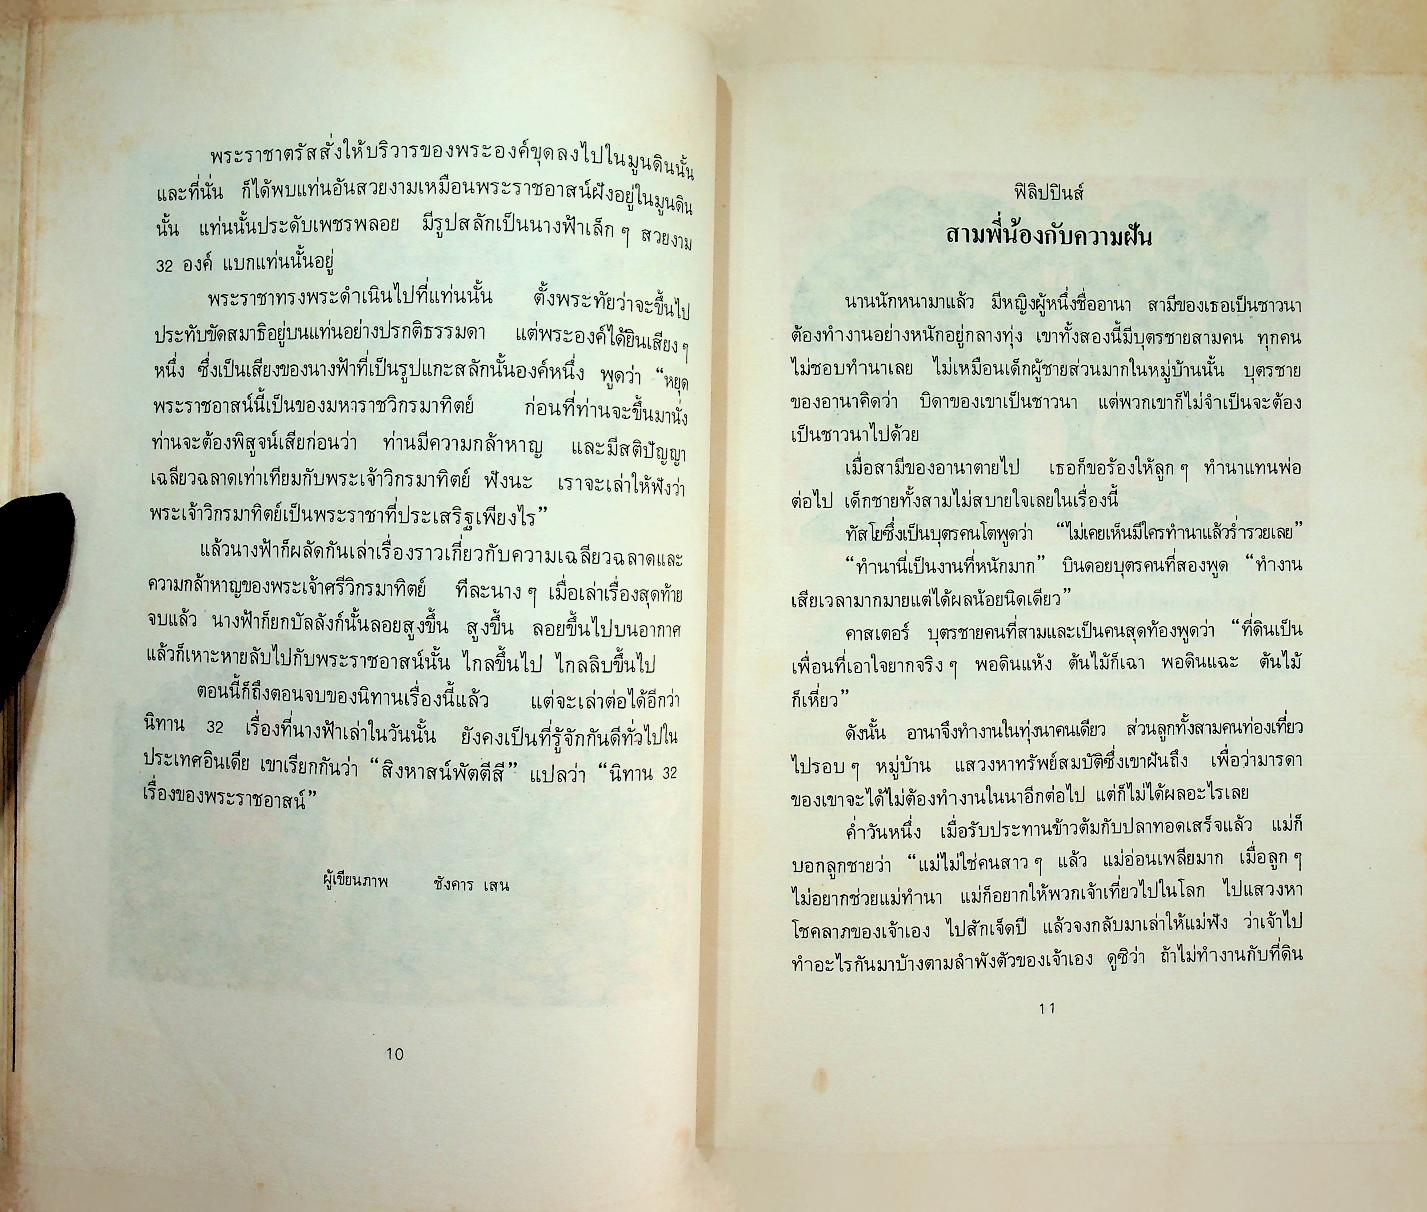 พระราชาตรัสสั่งให้บริวารของพระองค์ขุดลงไปในมูนดินนั้น
และที่นั่น ก็ได้พบแท่นอันสวยงามเหมือนพระราชอาสน์ฝังอยู่ในมูนดิน
นั้น แท่นนั้นประดับเพชรพลอย มีรูปสลักเป็นนางฟ้าเล็ก ๆ สวยงาม
32 องค์ แบกแท่นนั้นอยู่
พระราชาทรงพระดำเนินไปที่แท่นนั้น ตั้งพระทัยว่าจะขึ้นไป
ประทับขัดสมาธิอยู่บนแท่นอย่างปรกติธรรมดา แต่พระองค์ได้ยินเสียง ๆ
หนึ่ง ซึ่งเป็นเสียงของนางฟ้าที่เป็นรูปแกะสลักนั้นองค์หนึ่ง พูดว่า “หยุด
พระราชอาสน์นี้เป็นของมหาราชวิกรมาทิตย์ ก่อนที่ท่านจะขึ้นมานั่ง
ท่านจะต้องพิสูจน์เสียก่อนว่า ท่านมีความกล้าหาญ และมีสติปัญญา
เฉลียวฉลาดเท่าเทียมกับพระเจ้าวิกรมาทิตย์ ฟังนะ เราจะเล่าให้ฟังว่า
พระเจ้าวิกรมาทิตย์เป็นพระราชาที่ประเสริฐเพียงไร”
แล้วนางฟ้าก็ผลัดกันเล่าเรื่องราวเกี่ยวกับความเฉลียวฉลาดและ
ความกล้าหาญของพระเจ้าศรีวิกรมาทิตย์ ทีละนาง ๆ เมื่อเล่าเรื่องสุดท้าย
จบแล้ว นางฟ้าก็ยกบัลลังก์นั้นลอยสูงขึ้น สูงขึ้น ลอยขึ้นไปบนอากาศ
แล้วก็เหาะหายลับไปกับพระราชอาสน์นั้น ไกลขึ้นไป ไกลลิบขึ้นไป
ตอนนี้ก็ถึงตอนจบของนิทานเรื่องนี้แล้ว แต่จะเล่าต่อได้อีกว่า
นิทาน 32 เรื่องที่นางฟ้าเล่าในวันนั้น ยังคงเป็นที่รู้จักกันดีทั่วไปใน
ประเทศอินเดีย เขาเรียกกันว่า “สิงหาสน์พัตตีสี” แปลว่า “นิทาน 32
เรื่องของพระราชอาสน์”
ผู้เขียนภาพ ชังคาร เสน
10
ฟิลิปปินส์
สามพี่น้องกับความฝัน
นานนักหนามาแล้ว มีหญิงผู้หนึ่งชื่ออานา สามีของเธอเป็นชาวนา
ต้องทำงานอย่างหนักอยู่กลางทุ่ง เขาทั้งสองนี้มีบุตรชายสามคน ทุกคน
ไม่ชอบทำนาเลย ไม่เหมือนเด็กผู้ชายส่วนมากในหมู่บ้านนั้น บุตรชาย
ของอานาคิดว่า บิดาของเขาเป็นชาวนา แต่พวกเขาก็ไม่จำเป็นจะต้อง
เป็นชาวนาไปด้วย
เมื่อสามีของอานาตายไป เธอก็ขอร้องให้ลูก ๆ ทำนาแทนพ่อ
ต่อไป เด็กชายทั้งสามไม่สบายใจเลยในเรื่องนี้
ทัสโยซึ่งเป็นบุตรคนโตพูดว่า “ไม่เคยเห็นมีใครทำนาแล้วร่ำรวยเลย”
“ทำนานี่เป็นงานที่หนักมาก” บินดอยบุตรคนที่สองพูด “ทำงาน
เสียเวลามากมายแต่ได้ผลน้อยนิดเดียว”
คาสเตอร์ บุตรชายคนที่สามและเป็นคนสุดท้องพูดว่า “ที่ดินเป็น
เพื่อนที่เอาใจยากจริง ๆ พอดินแห้ง ต้นไม้ก็เฉา พอดินแฉะ ต้นไม้
ก็เหี่ยว”
ดังนั้น อานาจึงทำงานในทุ่งนาคนเดียว ส่วนลูกทั้งสามคนท่องเที่ยว
ไปรอบ ๆ หมู่บ้าน แสวงหาทรัพย์สมบัติซึ่งเขาฝันถึง เพื่อว่ามารดา
ของเขาจะได้ไม่ต้องทำงานในนาอีกต่อไป แต่ก็ไม่ได้ผลอะไรเลย
ค่ำวันหนึ่ง เมื่อรับประทานข้าวต้มกับปลาทอดเสร็จแล้ว แม่ก็
บอกลูกชายว่า “แม่ไม่ใช่คนสาว ๆ แล้ว แม่อ่อนเพลียมาก เมื่อลูก ๆ
ไม่อยากช่วยแม่ทำนา แม่ก็อยากให้พวกเจ้าเที่ยวไปในโลก ไปแสวงหา
โชคลาภของเจ้าเอง ไปสักเจ็ดปี แล้วจงกลับมาเล่าให้แม่ฟัง ว่าเจ้าไป
ทำอะไรกันมาบ้างตามลำพังตัวของเจ้าเอง ดูซิว่า ถ้าไม่ทำงานกับที่ดิน
11